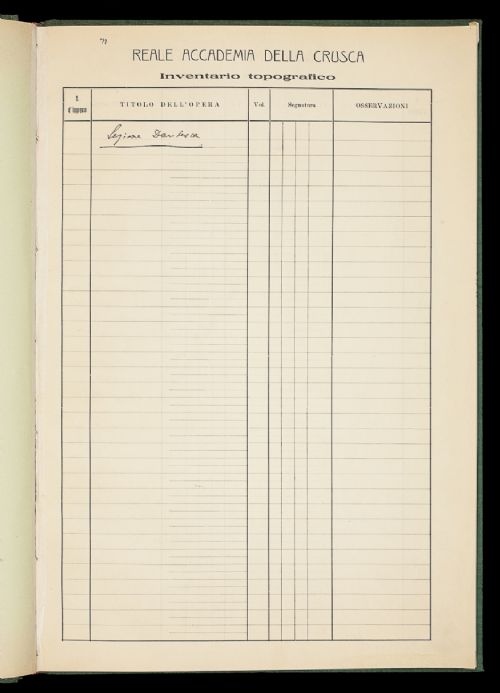 REALE ACCADEMIA DELLA CRUSCA
Inventario topografico
d'Ingresso
TITOLO DELL'OPERA
Vol.
Segnatura
OSSERVAZIONI
Sezione Dantesca